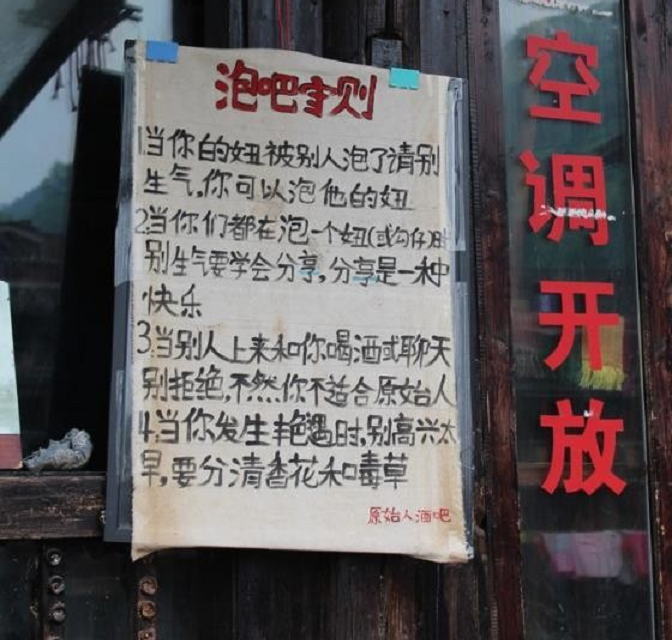 泡吧守则
1当你的妞被别人泡了请别
生气,你可以泡他的妞
2.当你们都在泡一个妞(或勾仔)时
别生气要学会分享,分享是一种
快乐
3.当别人上来和你喝酒或聊天
别拒绝,不然你不适合原始人
4.当你发生艳遇时,别高兴太
早,要分清香花和毒草
原始人酒吧
空调开放